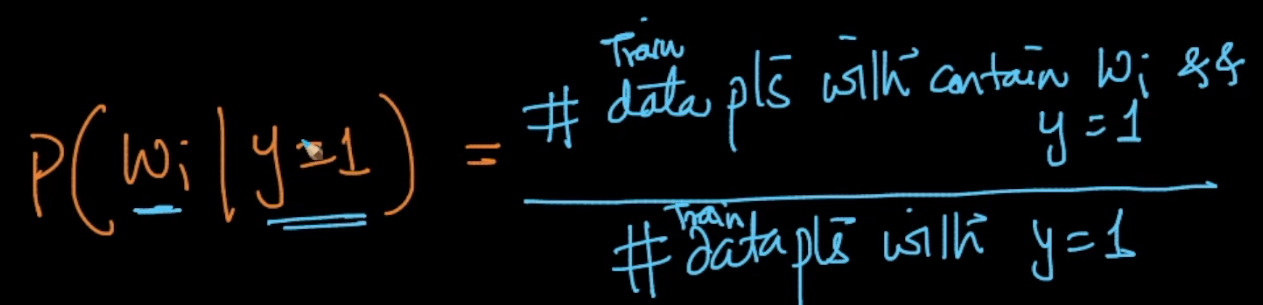 P(wi | y=1) =
Train
# data pts with contain wi &&
y = 1
Train
# data pts with y = 1